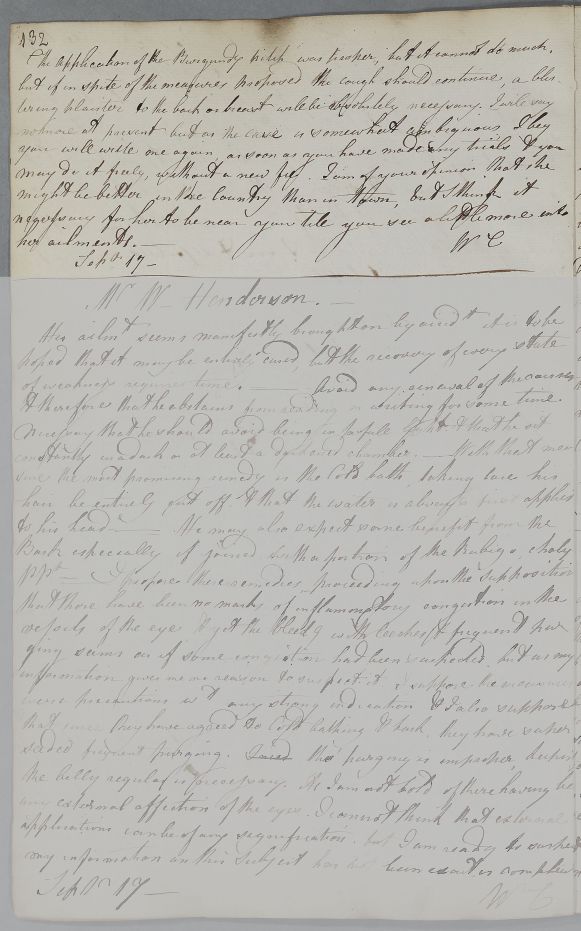 132
The application of the Burgundy pitch was proper, but it cannot do much,
but if in spite of the measures proposed the cough should continue, a blis-
tering plaister to the back or breast will be absolutely necessary. I will say
no more at present but as the case is somewhat ambiguous I beg
you will write me again, as soon as you have made any trials & you
may do it freely, without a new fee. I am of your opinion that she
might be better in the Country than in Town, but I think it
necessary for her to be near you till you see a little more into
her ailments. —
Sept. 17 — W C
Mr. Wm Henderson. —
His ailmt seems manifestly brought on by accidt it is to be
hoped that it may be entirely cured, but the recovery of every state
of weakness requires time. — Avoid any renewal of the causes
& therefore that he abstains from reading or writing for some time
necessary that he should avoid being in people & that he sit
constantly in a dark or at least a darkened chamber. — With that mea
sure the most promising remedy is the Cold bath, taking care his
hair be entirely cut off & that the water is always first applied
to his head — He may also expect some benefit from the
Bark especially if joined with a portion of the Rubigo. chalyb
ppt — I propose these remedies, proceeding upon the supposition
that there have been no marks of inflammatory congestion in the
vessels of the eye & yet the bleedg with leeches & frequent pur
ging seems as if some congestion had been suspected. but as my
information gives me no reason to suspect it. I suppose the
were precautions wt any strong indication & I also suppose
that since they have agreed to Cold bathing & bark, they have super
seded frequent purging. tho' purging is improper keeping
the belly regular is necessary. As I am not told of there having been
any external affection of the eyes. I cannot think that external
applications can be of any signification. but I am ready to suspect
my information on this subject has not been exact or complete
Septr 17 — Wm C